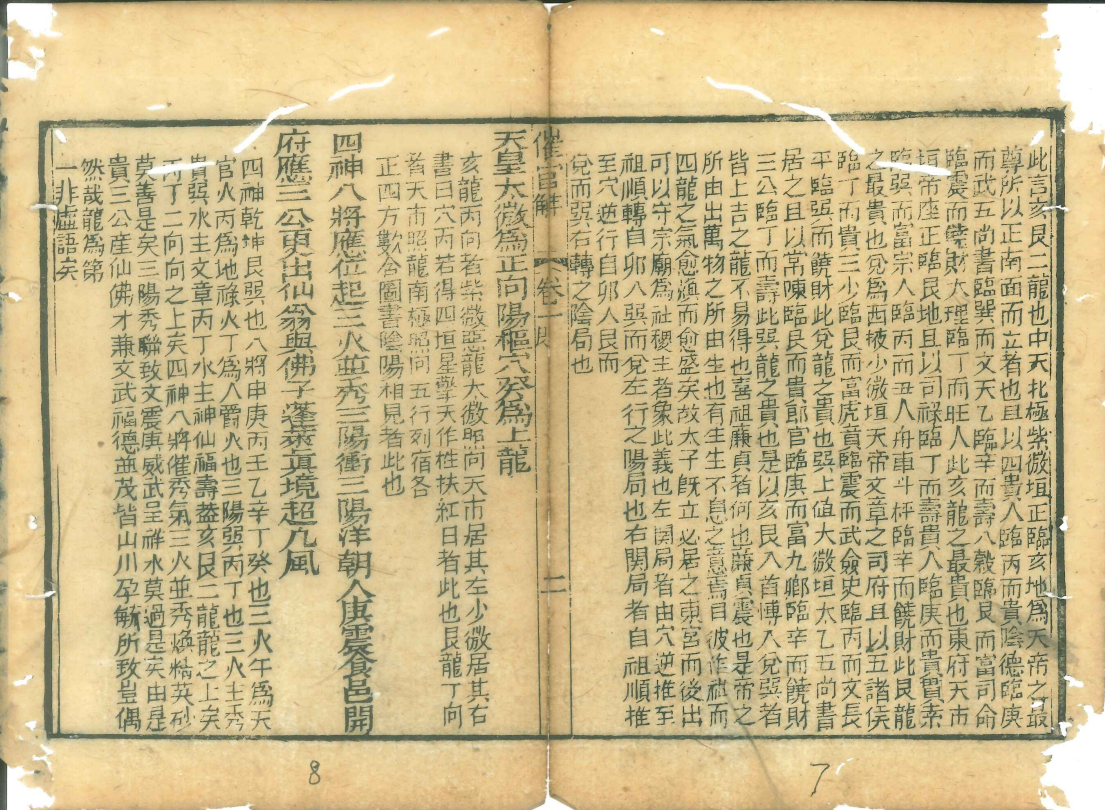 此言亥艮二龍也中天北極紫微垣正臨亥地爲天帝之最
尊所以正南面而立者也且以四貴人臨丙而貴陰德臨庚
而武五尚書臨巽而文天乙臨辛而壽八穀臨艮而富司命
臨震而饒財大理臨丁而旺人此亥龍之最貴也東府天市
垣帝座正臨艮地且以司祿臨丁而壽貴人臨庚而貴貫索
臨巽而富宗人臨丙而丑人舟車斗秤臨辛而饒財此艮龍
之最貴也兌爲西掖少微垣天帝文章之司府且以五諸侯
臨丁而貴三少臨艮而富虎賁臨震而武僉史臨丙而文長
平臨巽而饒財此兌龍之貴也巽上值大微垣太乙五尚書
居之且以常陳臨艮而貴郎官臨庚而富九卿臨辛而饒財
三公臨丁而壽此巽龍之貴也是以亥艮入首博入兌巽者
皆上吉之龍不易得也喜祖廉貞者何也廉貞震也是帝之
所由出萬物之所由生也有生生不息之意焉目彼作祖而
四龍之氣愈旺而愈盛矣故太子旣立必居之東宮而後出
可以守宗廟爲社稷主者象此義也左関局者由穴逆推至
祖順轉自卯八巽而兌左行之陽局也右関局者自祖順推
至穴逆行自卯人艮而
兌而巽右轉之陰局也
催官解 卷一 艮 二
天皇大微爲正向陽樞穴癸爲上龍
亥龍丙向者紫微惡龍大微昭向天市居其左少微居其右
書曰穴丙若得四垣星擎天作柱扶紅日者此也艮龍丁向
者天市昭龍南極昭向五行列宿各
正四方數合圖書陰陽相見者此也
四神八將應位起三火並秀三陽衝三陽洋朝人庚震食邑開
府應三公更出仙翁與佛子蓬萊真境超凡風
四神乾坤艮巽也八將申庚丙壬乙辛丁癸也三火午爲天
官火丙爲地祿火丁爲人爵火也三陽巽丙丁也三火主秀
貴巽水主文章丙丁水主神仙福壽葢亥艮二龍龍之上矣
丙丁二向向之上矣四神八將催秀氣三火並秀煥精英砂
莫善是矣三陽秀聯致文震庚威武呈祥水莫過是矣由是
貴三公産仙佛才兼文武福德並茂皆山川孕毓所致豈偶
然哉龍爲第
一非虛語矣
8
7